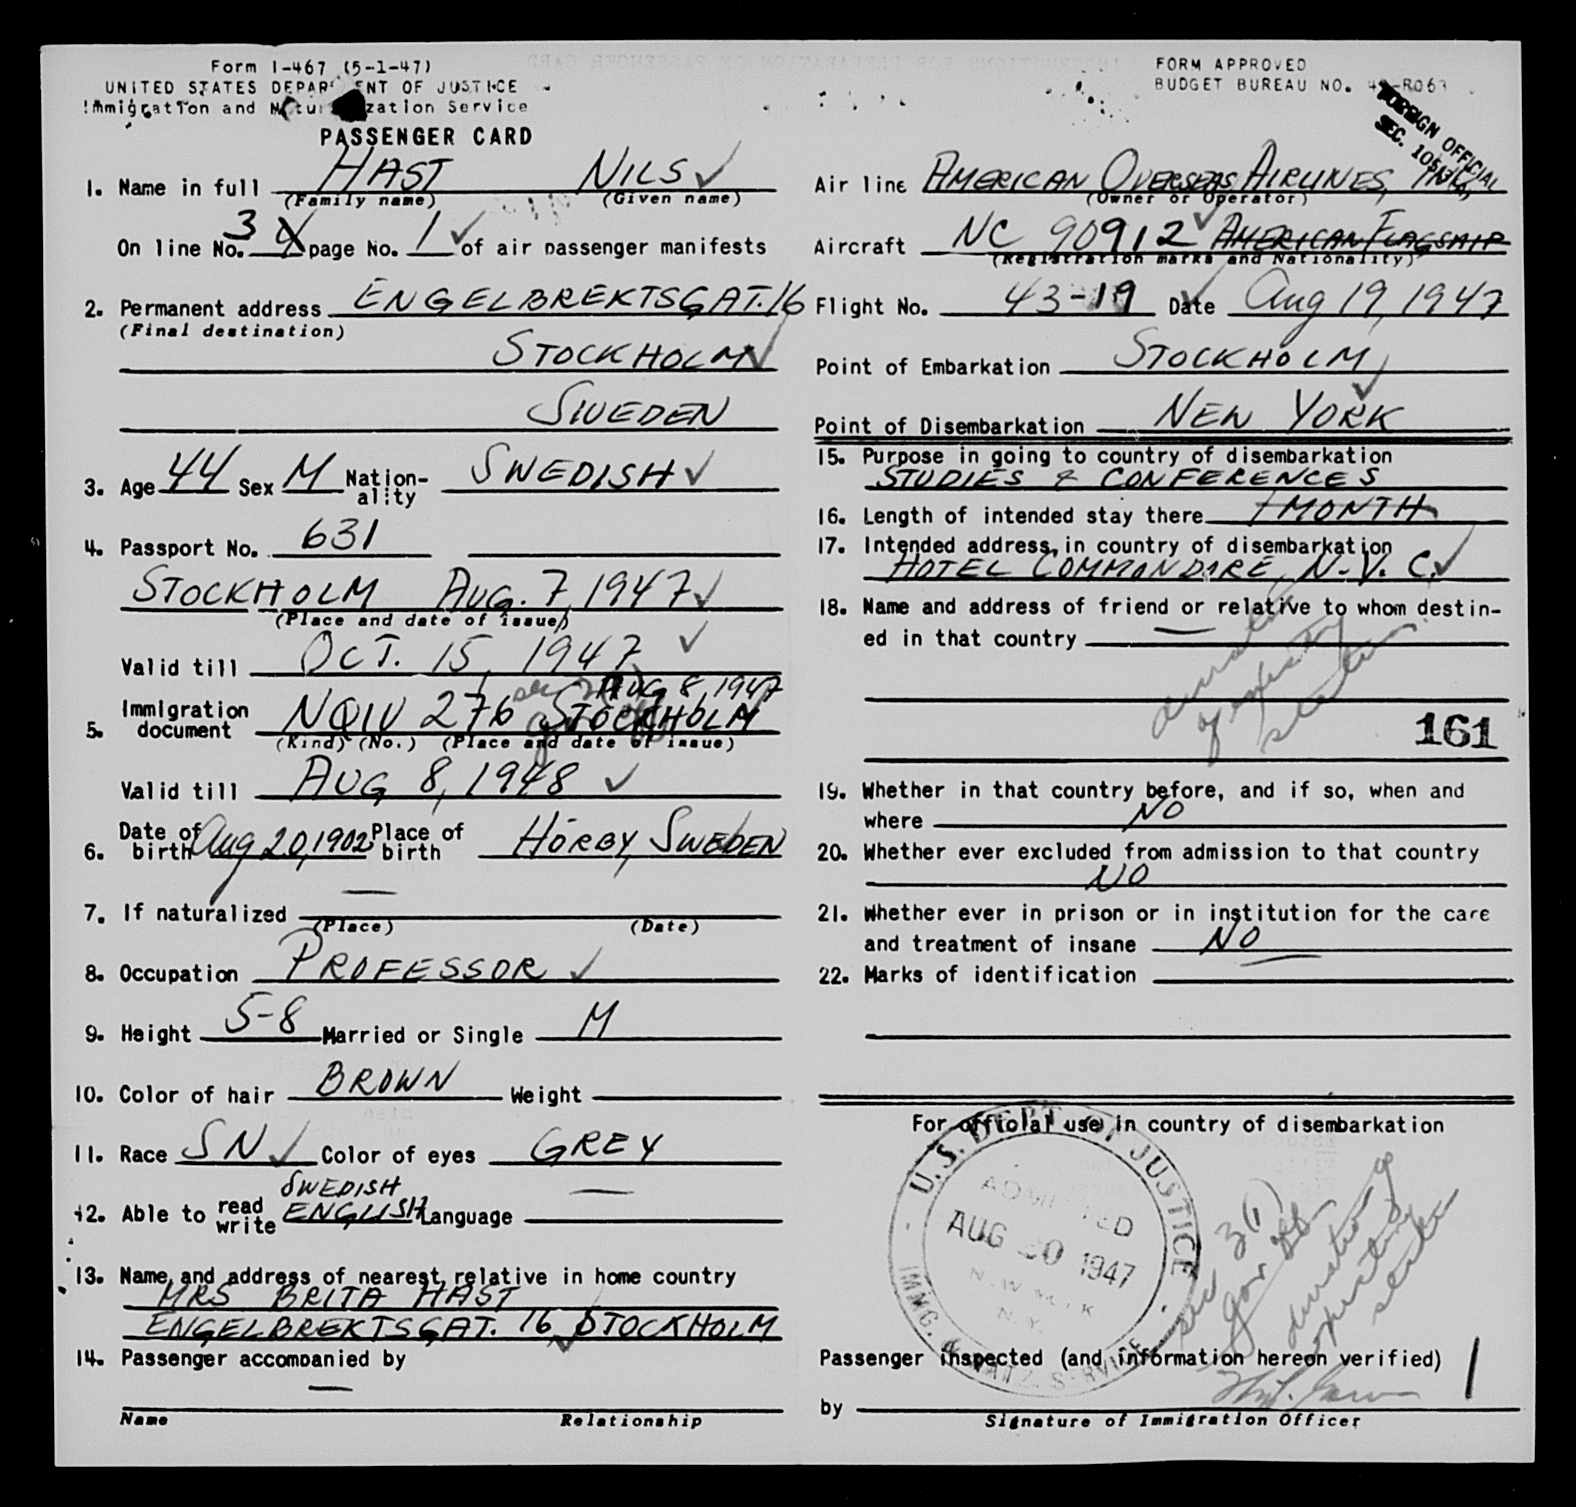 Form I-467 (5-1-47)
UNITED STATES DEPARTMENT OF JUSTICE
Immigration and Naturalization Service
PASSENGER CARD
FORM APPROVED
BUDGET BUREAU NO. 43-R063
FOREIGN OFFICIAL
1. Name in full HAST NILS
(Family name) (Given name)
On line No. 3 4 page No. 1 of air passenger manifests
2. Permanent address ENGELBREKTSGAT. 16
(Final destination)
STOCKHOLM
SWEDEN
3. Age 44 Sex M Nation-
ality SWEDISH
4. Passport No. 631
STOCKHOLM AUG. 7, 1947
(Place and date of issue)
Valid till OCT. 15, 1947
AUG 8, 1947
5. Immigration
document NQIV 276 STOCKHOLM
(Kind) (No.) (Place and date of issue)
Valid till AUG 8, 1948
6. Date of
birth Aug 20, 1902 Place of
birth HÖRBY, SWEDEN
7. If naturalized —
(Place) (Date)
8. Occupation PROFESSOR
9. Height 5-8 Married or Single M
10. Color of hair BROWN Weight
11. Race SN Color of eyes GREY
SWEDISH
12. Able to read
write ENGLISH Language —
13. Name and address of nearest relative in home country
MRS BRITA HAST
ENGELBREKTSGAT. 16 STOCKHOLM
14. Passenger accompanied by
—
Name Relationship
Air line AMERICAN OVERSEAS AIRLINES, INC.
(Owner or Operator)
Aircraft NC 90912 AMERICAN FLAGSHIP
(Registration marks and Nationality)
Flight No. 43-19 Date Aug 19, 1947
Point of Embarkation STOCKHOLM
Point of Disembarkation NEW YORK
15. Purpose in going to country of disembarkation
STUDIES & CONFERENCES
16. Length of intended stay there 1 MONTH
17. Intended address in country of disembarkation
HOTEL COMMONDORE, N.Y.C.
18. Name and address of friend or relative to whom destin-
ed in that country —
duration
of
status
161
19. Whether in that country before, and if so, when and
where NO
20. Whether ever excluded from admission to that country
NO
21. Whether ever in prison or in institution for the care
and treatment of insane NO
22. Marks of identification —
For official use in country of disembarkation
U.S. DEPT. OF JUSTICE
ADMITTED
AUG 20 1947
NEW YORK
N.Y.
IMMG. & NATZ. SERVICE
sec 3(1)
duration of
status
Passenger inspected (and information hereon verified)
by
Signature of Immigration Officer